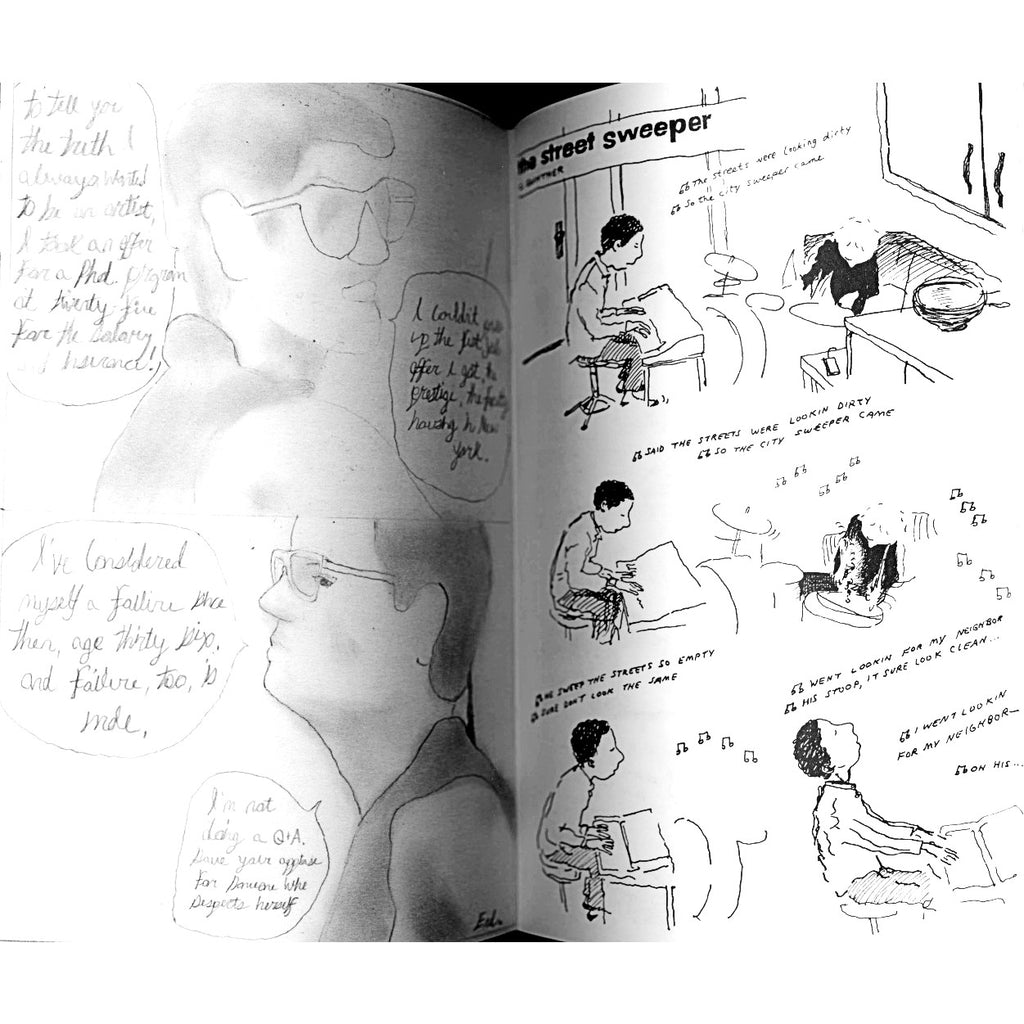 to tell you
the truth I
always wanted
to be an artist,
I took an offer
for a Phd. program
at twenty-five
for the salary
and Insurance!
I couldn't give
up the first job
offer I got, the
prestige, the faculty
housing in New
York.
I've Considered
myself a failure since
then, age thirty six.
and failure, too, is
mde.
I'm not
doing a Q+A.
Save your applause
for someone who
respects herself
the street sweeper
GUNTHER
The streets were looking dirty
So the city sweeper came
SAID THE STREETS WERE LOOKIN DIRTY
SO THE CITY SWEEPER CAME
HE SWEEP THE STREETS SO EMPTY
SURE DON'T LOOK THE SAME
WENT LOOKIN FOR MY NEIGHBOR
HIS STOOP, IT SURE LOOK CLEAN...
I WENT LOOKIN
FOR MY NEIGHBOR—
ON HIS...